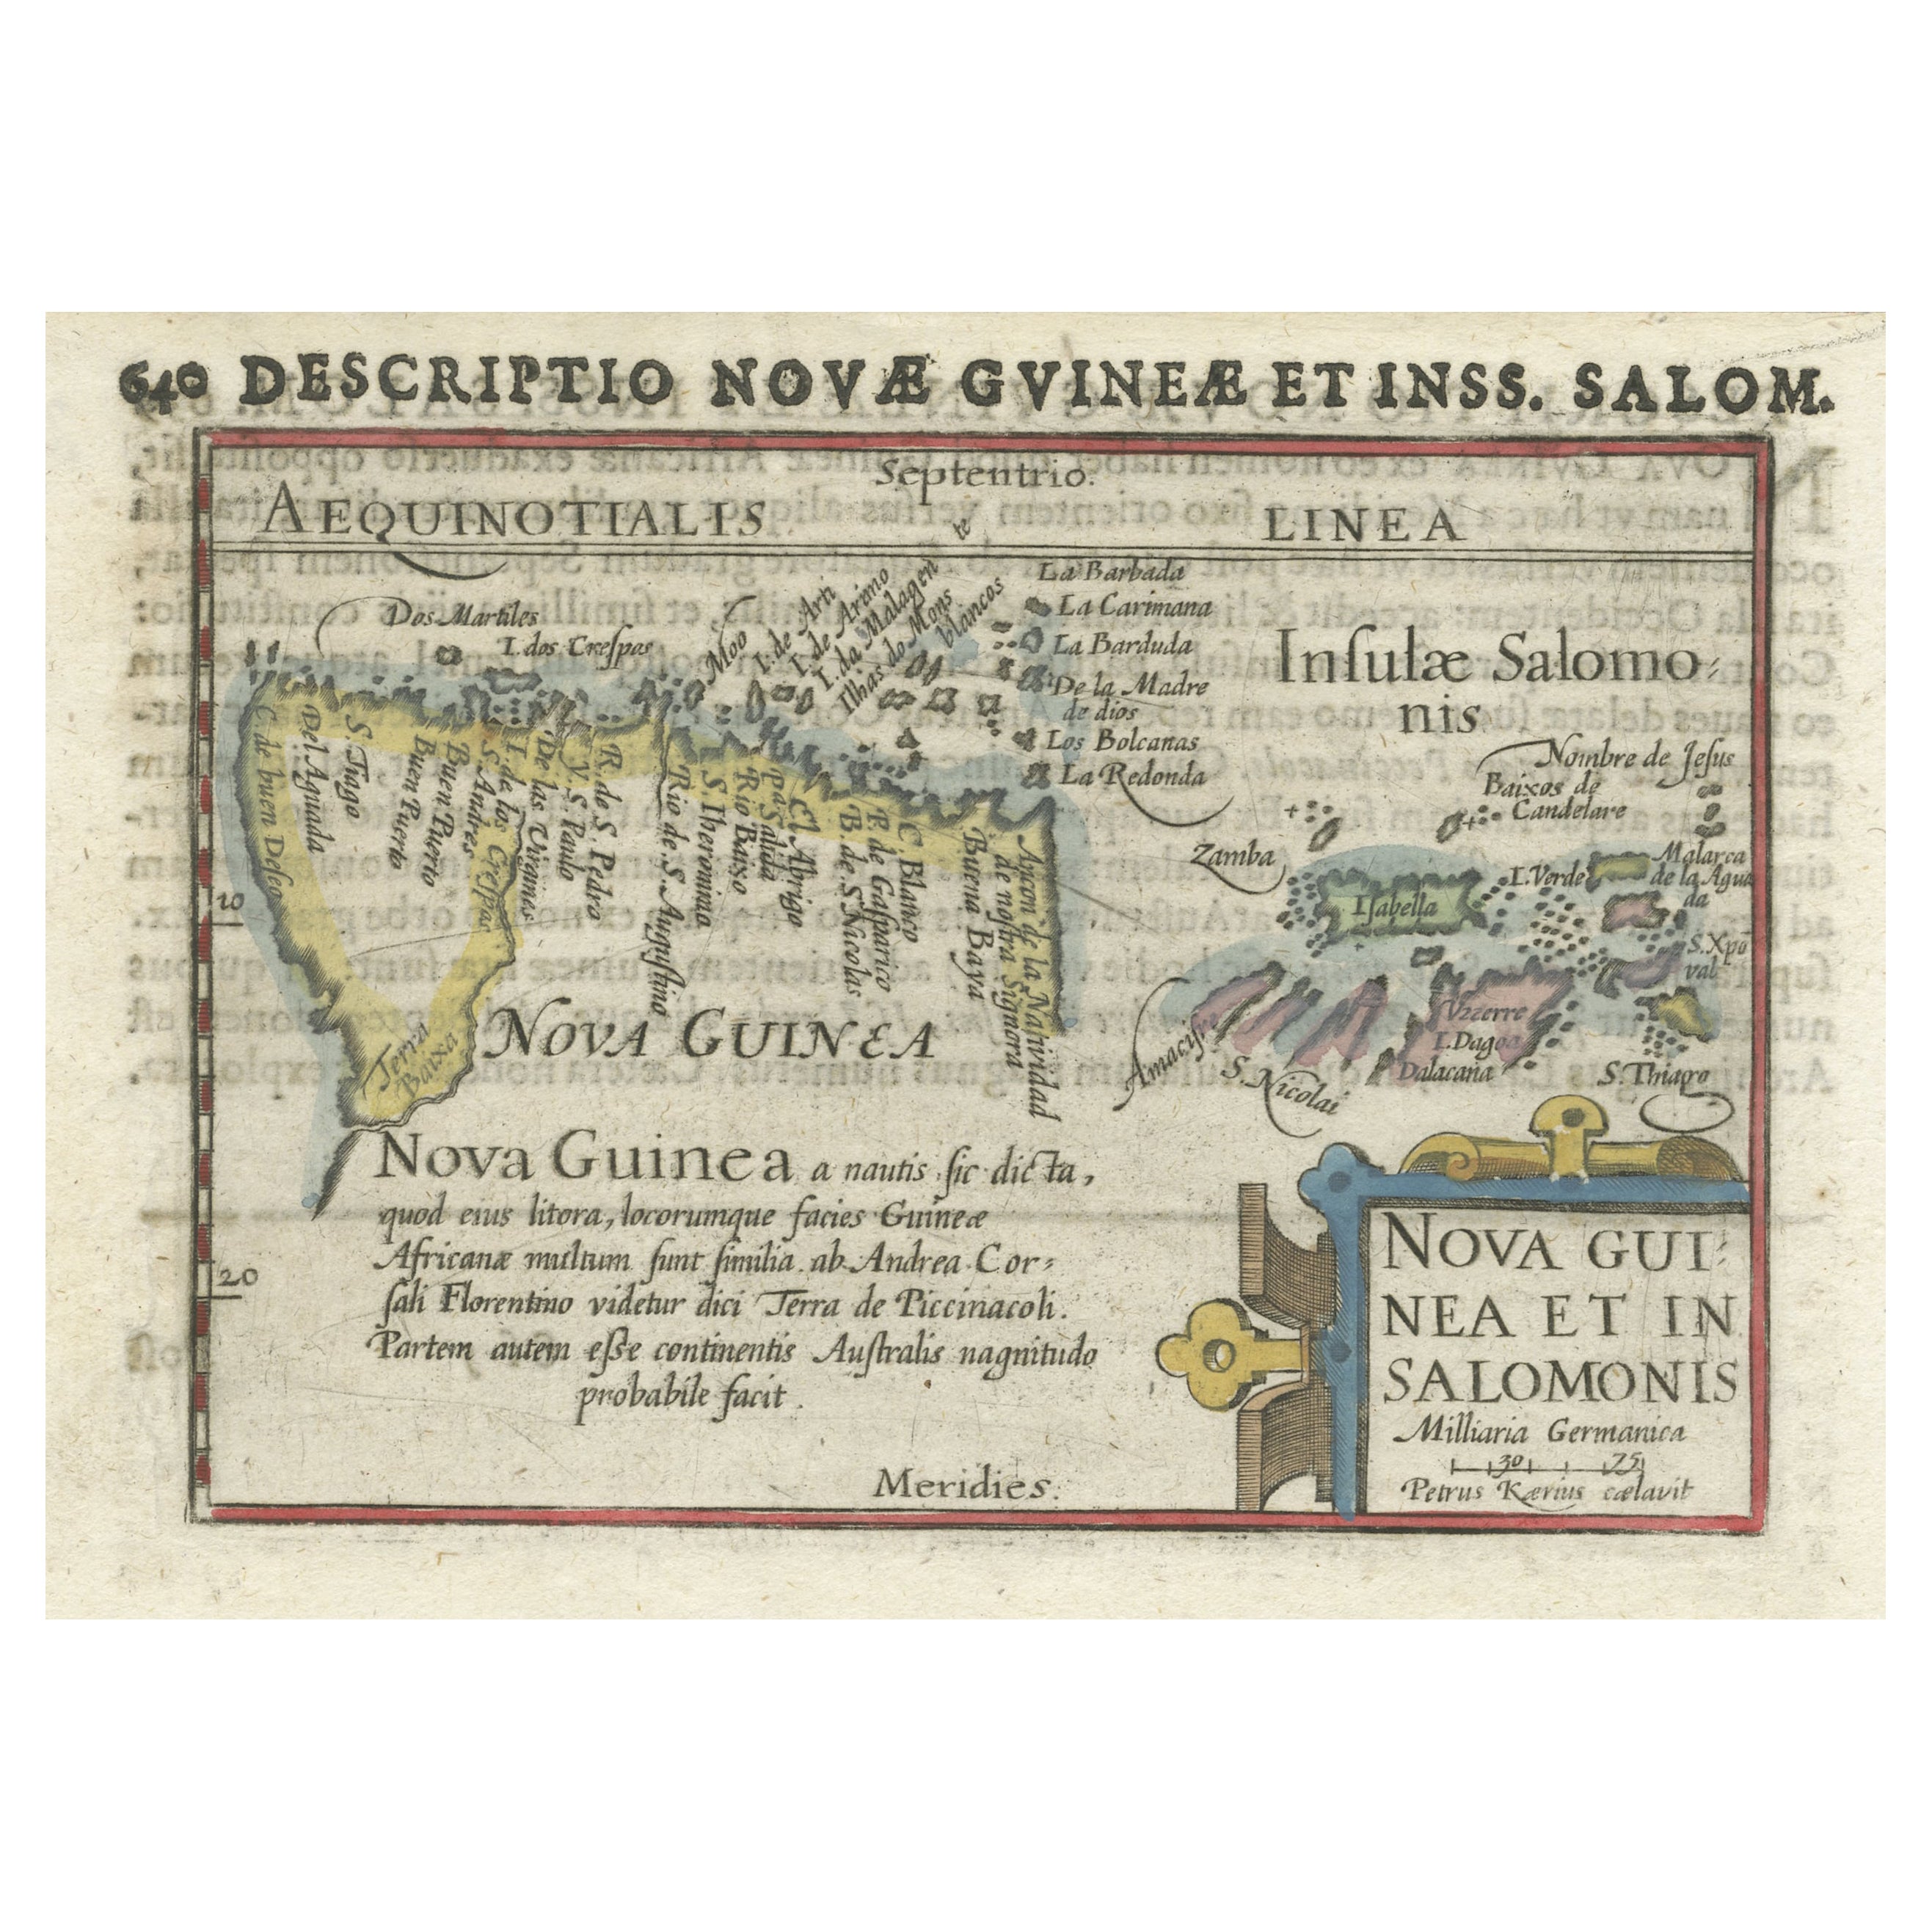 640 DESCRIPTIO NOVÆ GVINEÆ ET INSS. SALOM.
Septentrio.
AEQUINOTIALIS LINEA
Dos Martiles
I. dos Creſpos
Moo
I. de Arti
I. de Arimo
I. da Malagen
te
Ilhas do Mons
blancos
La Barbada
La Carimana
La Barduda
De la Madre
de dios
Los Bolcanas
La Redonda
Inſulæ Salomo⸗
nis
Nombre de Jeſus
Baixos de
Candelare
Zamba
Iſabella
I. Verde
Malarca
de la Agua
da
S. Xpo
val
Amacifr
S. Nicolai
I. Dagoa
Dalacana
S. Thiago
C. de buen Deſeo
Del Aguada
S. Tiago
Buen Puerto
Buen Puerto
S. Andres
I. de los Creſpos
De las Virgines
y S. Paulo
R. de S. Pedro
Rio de S. Auguſtino
S. Iheronimo
Rio Baixo
Pa Salida
El Abrigo
B de S. Nicolas
P. de Gaſparico
C. Blanco
Buena Baya
Ancon de la Natividad
de noſtra Signora
Terra
Baixa
10
NOVA GUINEA
Nova Guinea a nautis ſic dicta,
quod eius litora, locorumque facies Guineæ
Africanæ multum ſunt ſimilia. ab Andrea Cor⸗
ſali Florentino videtur dici Terra de Piccinacoli.
Partem autem eſſe continentis Auſtralis nagnitudo
probabile facit.
20
Meridies.
NOVA GUI⸗
NEA ET IN
SALOMONIS
Milliaria Germanica
30 75
Petrus Kærius cælavit